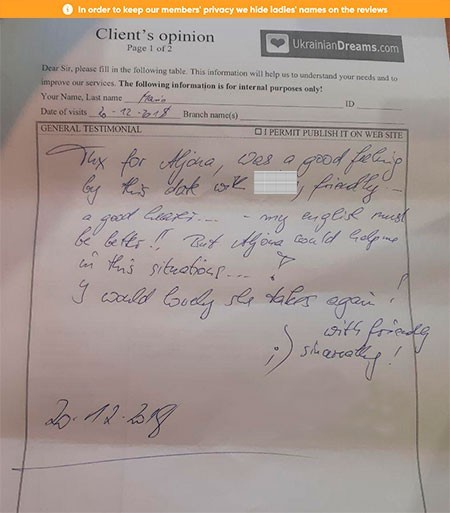 In order to keep our members' privacy we hide ladies' names on the reviews
Client's opinion
Page 1 of 2
UkrainianDreams.com
Dear Sir, please fill in the following table. This information will help us to understand your needs and to
improve our services. The following information is for internal purposes only!
Your Name, Last name Mario ID
Date of visits 20-12-2018 Branch name(s)
GENERAL TESTIMONIAL I PERMIT PUBLISH IT ON WEB SITE
Thx for Aljona, was a good feeling
by this date with , friendly...
a good .... - my english must
be better!! But Aljona could help me
in this situations.... !
I would lovely she takes again!
with friendly
;) !
20-12-2018